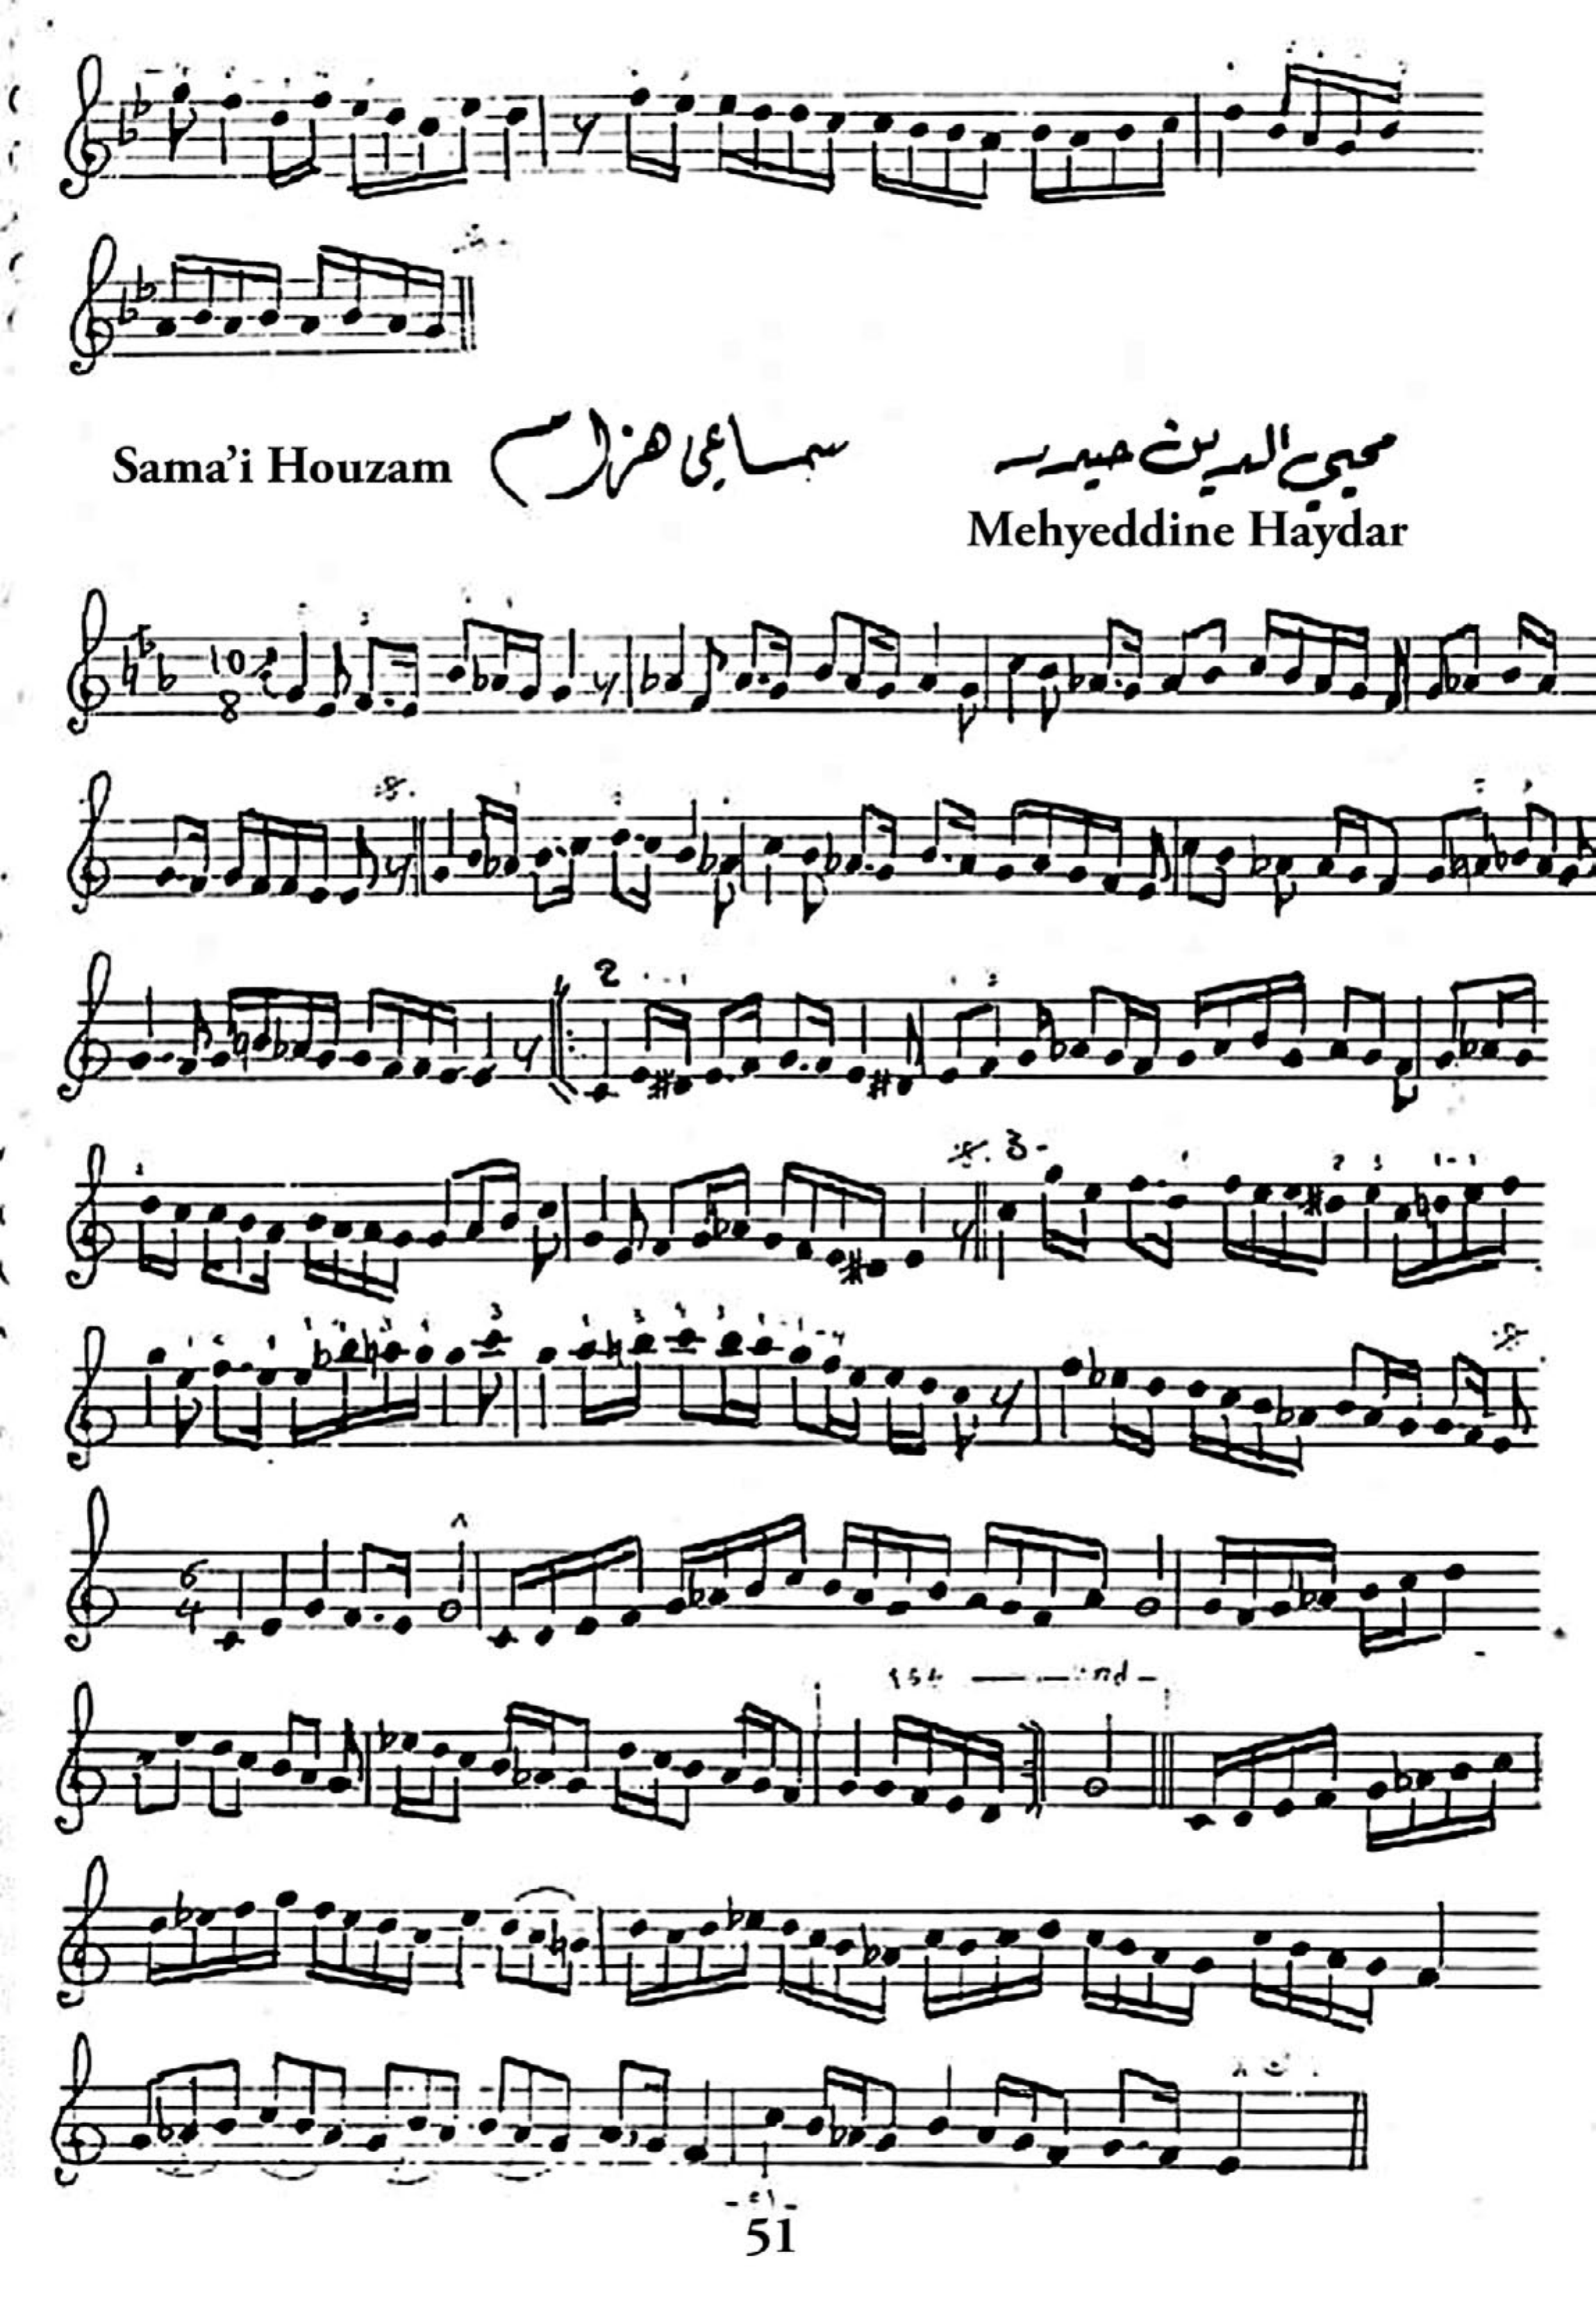 Sama'i Houzam سماعي هزام محيي الدين حيدر
Mehyeddine Haydar
10
8
2
3-
6
4
1st — nd –
51